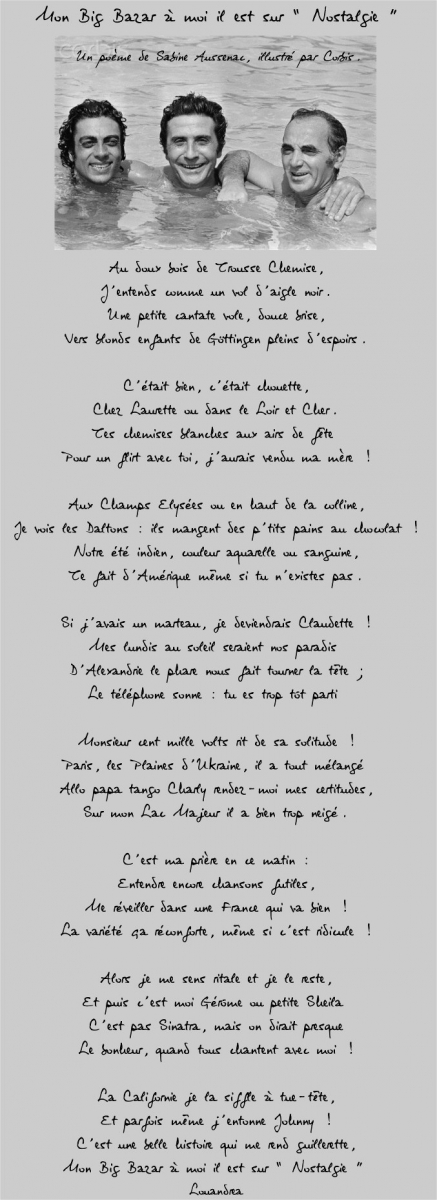 Mon Big Bazar à moi il est sur " Nostalgie "
Un poème de Sabine Aussenac, illustré par Corbis.
Au doux bois de Trousse Chemise,
J'entends comme un vol d'aigle noir.
Une petite cantate vole, douce brise,
Vers blonds enfants de Göttingen pleins d'espoirs.
C'était bien, c'était chouette,
Chez Laurette ou dans le Loir et Cher.
Tes chemises blanches aux airs de fête
Pour un flirt avec toi, j'aurais vendu ma mère !
Aux Champs Elysées ou en haut de la colline,
Je vois les Daltons : ils mangent des p'tits pains au chocolat !
Notre été indien, couleur aquarelle ou sanguine,
Te fait d'Amérique même si tu n'existes pas.
Si j'avais un marteau, je deviendrais Claudette !
Mes lundis au soleil seraient nos paradis
D'Alexandrie le phare nous fait tourner la tête ;
Le téléphone sonne : tu es trop tôt parti
Monsieur cent mille volts rit de sa solitude !
Paris, les Plaines d'Ukraine, il a tout mélangé
Allo papa tango Charly rendez-moi mes certitudes,
Sur mon Lac Majeur il a bien trop neigé.
C'est ma prière en ce matin :
Entendre encore chansons futiles,
Me réveiller dans une France qui va bien !
La variété ça réconforte, même si c'est ridicule !
Alors je me sens ritale et je le reste,
Et puis c'est moi Gérome ou petite Sheila
C'est pas Sinatra, mais on dirait presque
Le bonheur, quand tous chantent avec moi !
La Californie je la siffle à tue-tête,
Et parfois même j'entonne Johnny !
C'est une belle histoire qui me rend guillerette,
Mon Big Bazar à moi il est sur " Nostalgie "
Louandrea